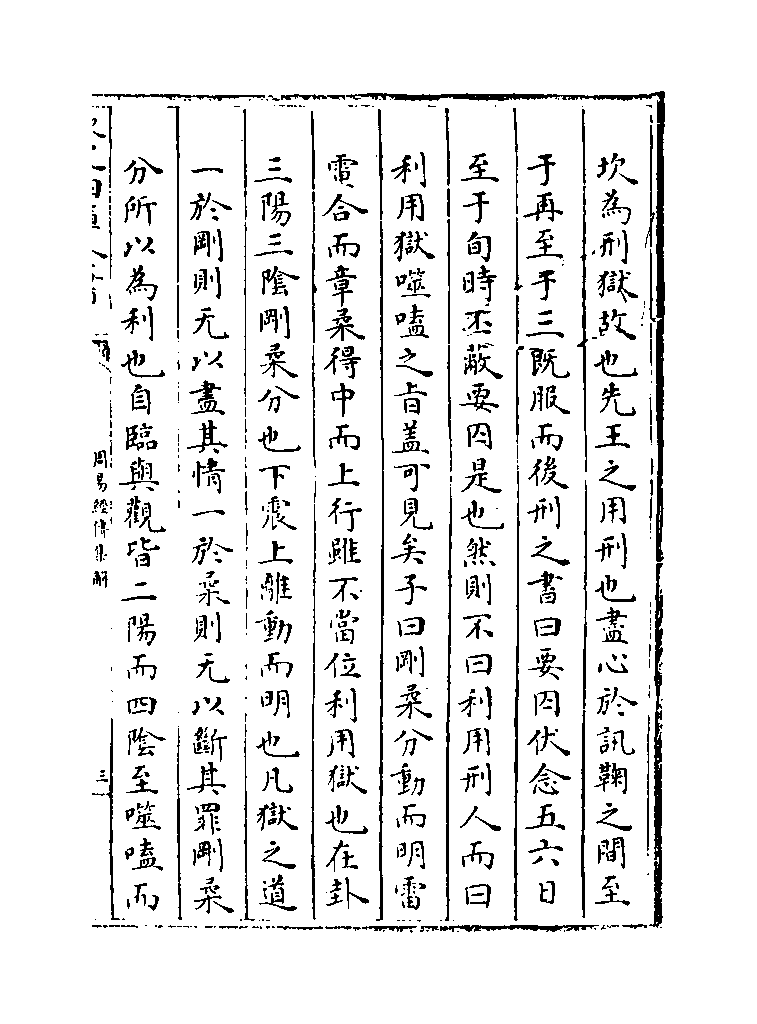 坎為刑獄故也先王之用刑也盡心於訊鞠之間至
于再至于三既服而後刑之書曰要囚伏念五六日
至于旬時丕蔽要囚是也然則不曰利用刑人而曰
利用獄噬嗑之旨盖可見矣子曰剛柔分動而明雷
電合而章柔得中而上行雖不當位利用獄也在卦
三陽三陰剛柔分也下震上離動而明也凡獄之道
一於剛則无以盡其情一於柔則无以斷其罪剛柔
分所以為利也自臨與觀皆二陽而四陰至噬嗑而
周易經傳集解
三